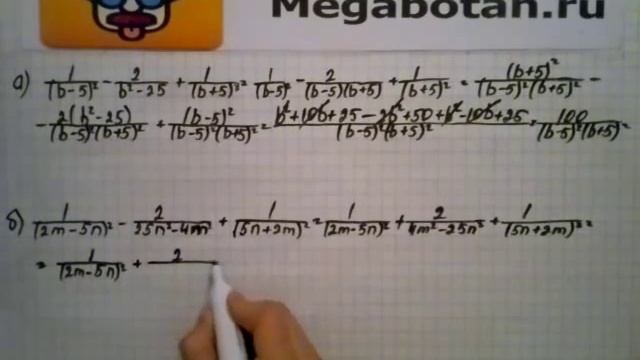 Megabotan.ru
а) 1/(b-5)² - 2/b²-25 + 1/(b+5)² = 1/(b-5)² - 2/(b-5)(b+5) + 1/(b+5)² = (b+5)²/(b-5)²(b+5)² -
- 2(b²-25)/(b-5)²(b+5)² + (b-5)²/(b-5)²(b+5)² = b²+10b+25-2b²+50+b²-10b+25/(b-5)²(b+5)² = 100/(b-5)²(b+5)²
б) 1/(2m-5n)² - 2/25n²-4m² + 1/(5n+2m)² = 1/(2m-5n)² + 2/4m²-25n² + 1/(5n+2m)² =
= 1/(2m-5n)² + 2/